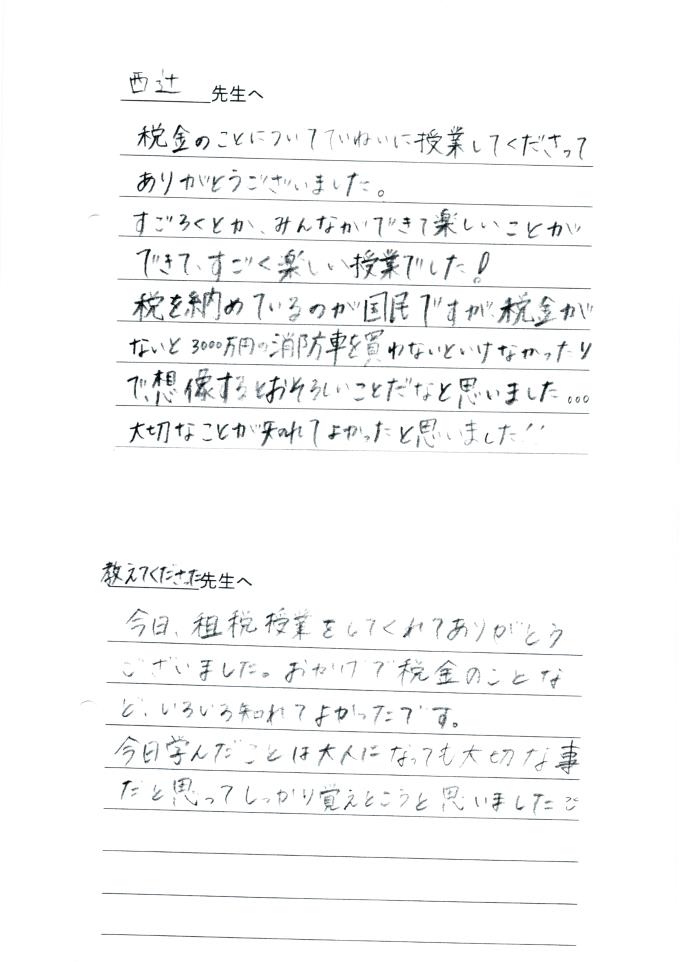 西辻 先生へ
税金のことについてていねいに授業してくださって
ありがとうございました。
すごろくとか、みんなができて楽しいことが
できて、すごく楽しい授業でした!
税を納めているのが国民ですが、税金が
ないと3000万円の消防車を買わないといけなかったり
で、想像するとおそろしいことだなと思いました...
大切なことが知れてよかったと思いました!!
教えてくださった先生へ
今日、租税授業をしてくれてありがとう
ございました。おかげで税金のことな
ど、いろいろ知れてよかったです。
今日学んだことは大人になっても大切な事
だと思ってしっかり覚えとこうと思いました